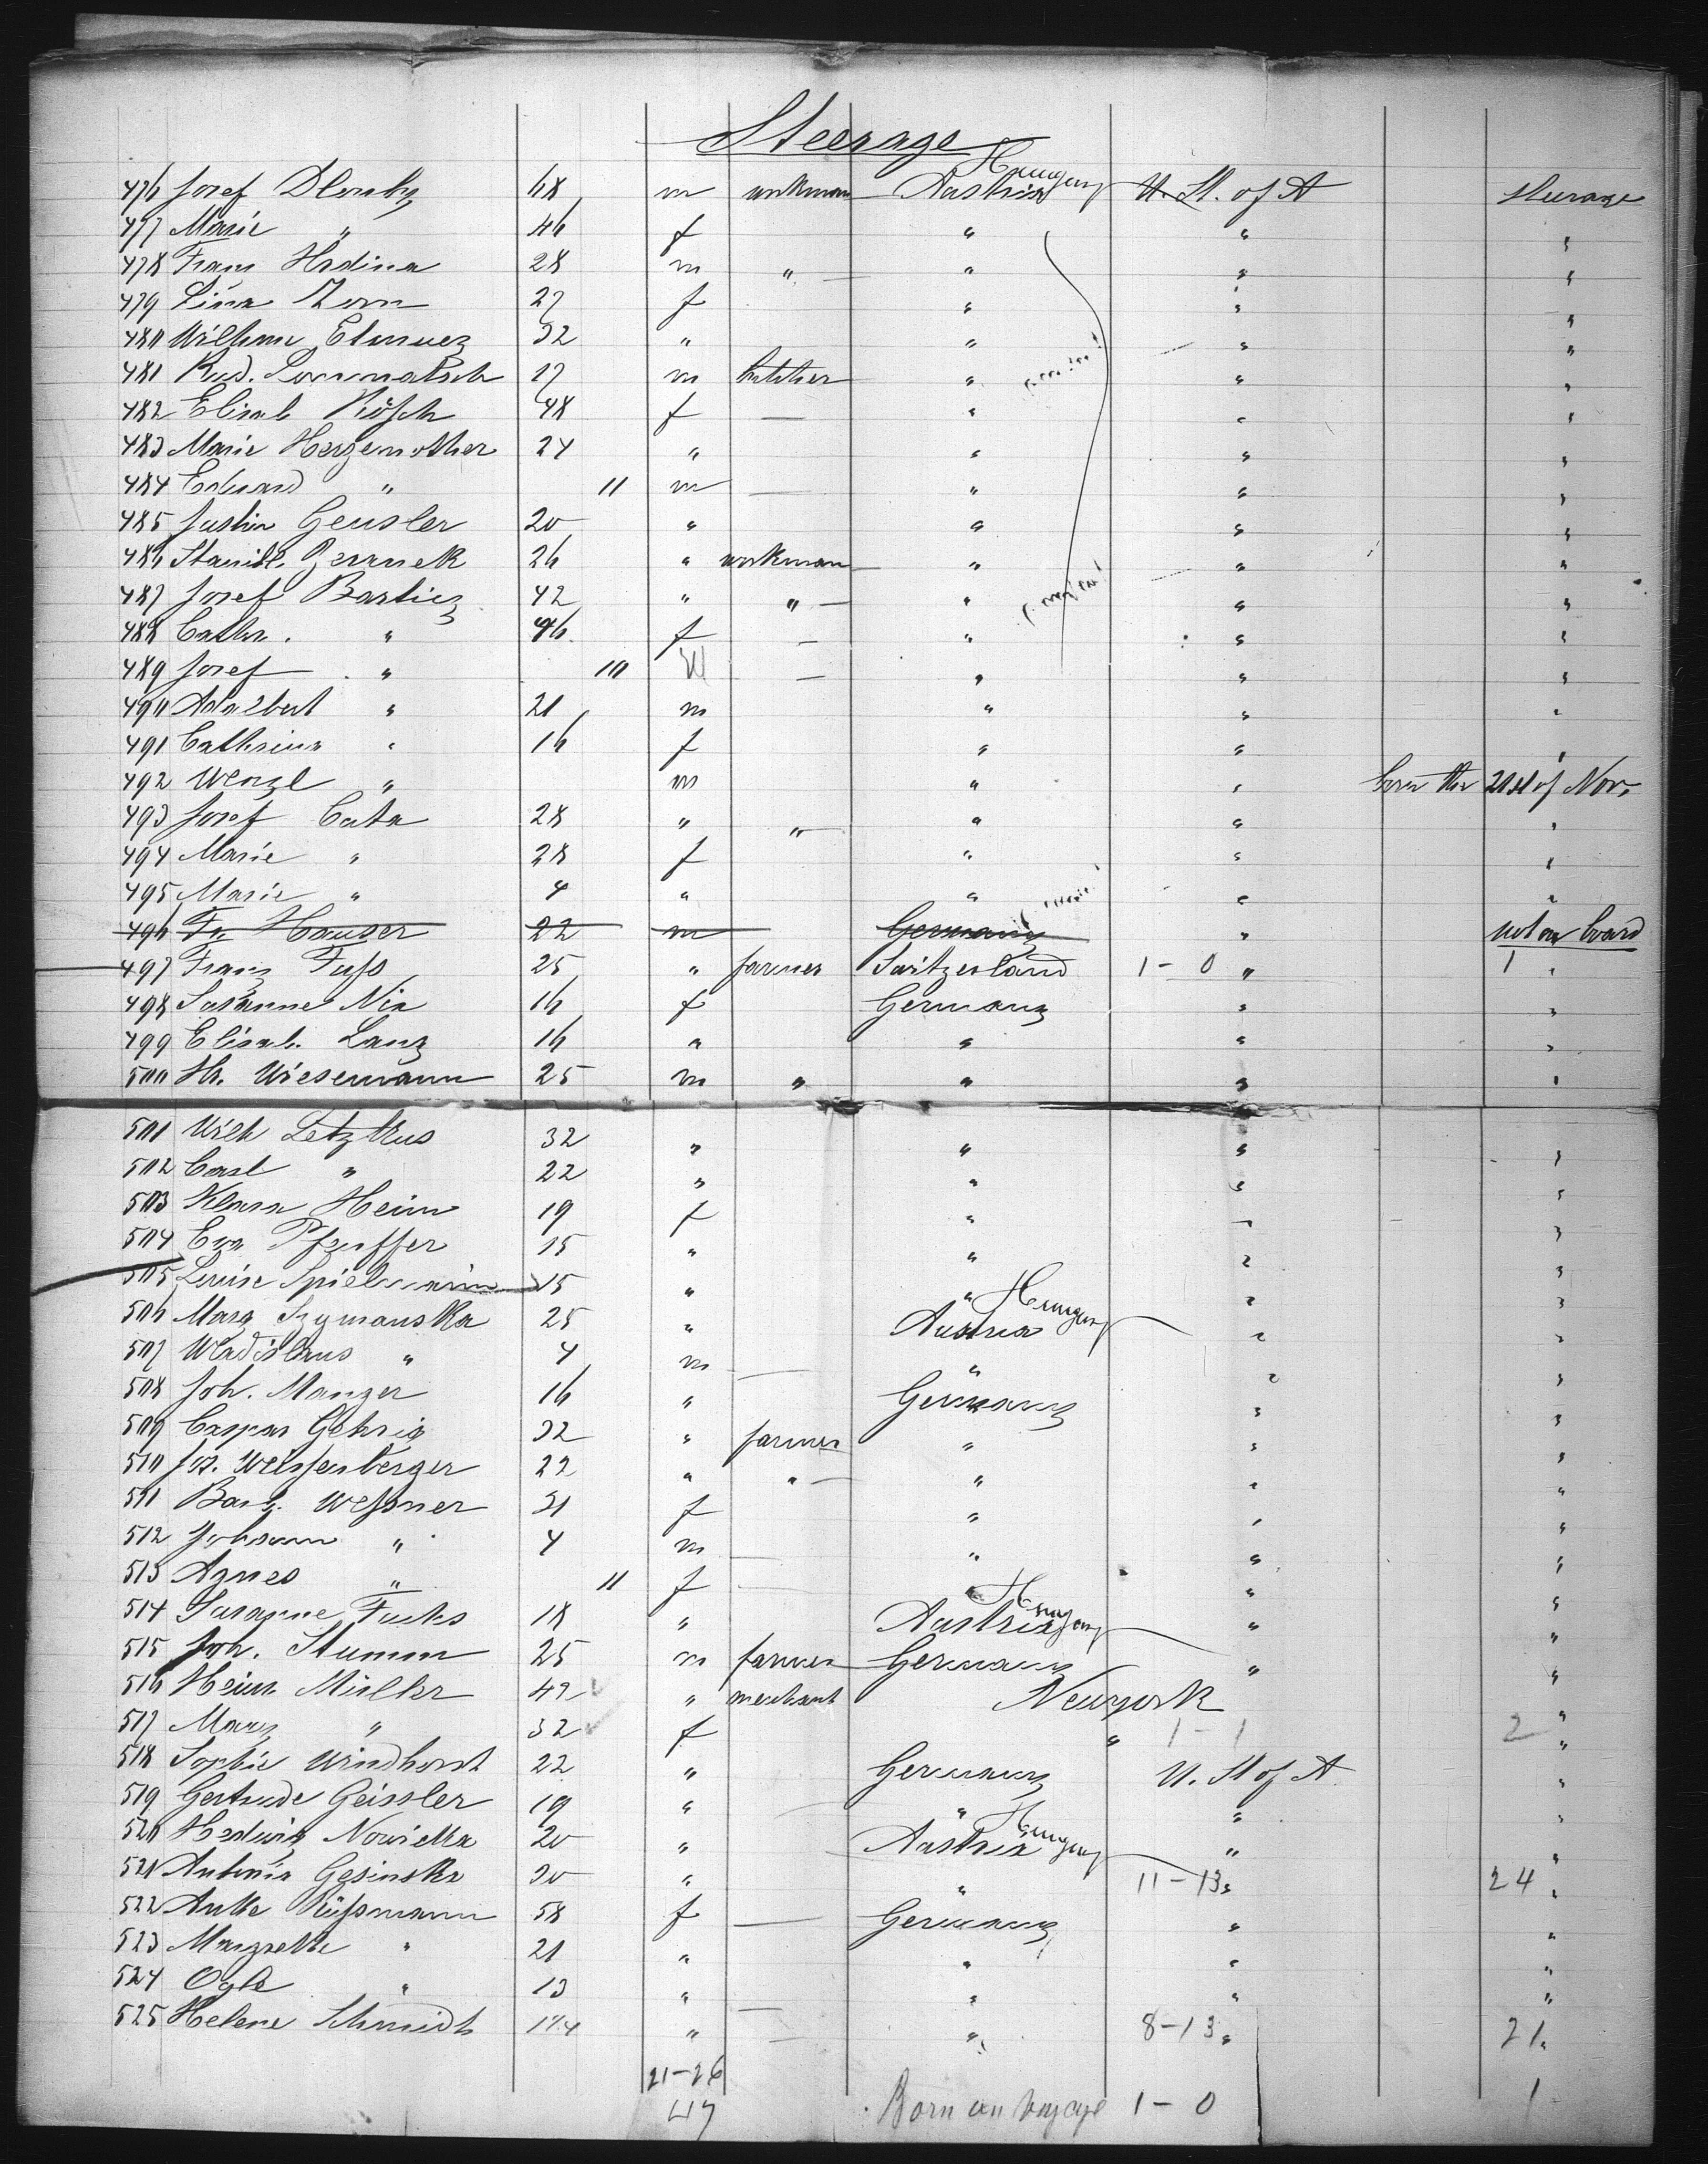 Steerage
476 Josef 68 m workman Austria Hungary U. St. of A Steerage
477 Marie " 46 f " " "
478 Franz Hrdina 28 m " " " "
479 Lina Zorn 27 f " " "
480 32 " " " "
481 Rud. Lommatsch 27 m butcher " " "
482 Elisab Rösch 48 f — " " "
483 Marie Hergenröther 24 " " " "
484 Eduard " 11 m — " " "
485 Justin Geusler 20 " " " "
486 Stanisl. 26 " workman " " "
487 Josef 42 " " " " "
488 Cathr. " 46 f — " " "
489 Josef " 10 — " " "
490 Adalbert " 21 m " " "
491 Cathrina " 16 f " " "
492 Wenzl " m " " born the 21st of Nov.
493 Josef Cata 28 " " " " "
494 Marie " 28 f " " "
495 Marie " 4 " " " "
496 Fr. Hauser 22 m Germany " not on board
497 Franz Fuss 25 " farmer Switzerland 1-0 " 1 "
498 Susanne Nix 16 f Germany " "
499 Elisab. Lang 16 " " " "
500 Hr. Wiesemann 25 m " " " "
501 Wilh Letzkus 32 " " " "
502 Carl " 22 " " " "
503 Klara Heim 19 f " " "
504 Eva Pfeuffer 15 " " " "
505 Louise Spielmann 15 " " " "
506 Marg Szymanska 25 " Austria Hungary " "
507 Wladislaus " 4 m — " " "
508 Joh. Manger 16 " Germany " "
509 Caspar Gehrig 32 " farmer " " "
510 Jos. Weissenberger 22 " " " " "
511 Barb. Wessner 31 f " " "
512 Johann " 4 m — " " "
513 Agnes " 11 f — " " "
514 Susanne Fuchs 18 " Austria Hungary " "
515 Joh. Stumm 25 m farmer Germany " "
516 Heinr. Müller 42 " merchant Newyork "
517 Mary " 32 f " 1-1 2 "
518 Sophie Windhorst 22 " Germany U. St of A "
519 Gertrude Geissler 19 " " " "
520 Hedwig 20 " Austria Hungary " "
521 Antonia Gesinska 20 " " 11-13 " 24 "
522 Antke Rüssmann 58 f — Germany " "
523 Margrethe " 21 " " " "
524 " 13 " — " " "
525 Helene Schmidt " — " 8-13 " 21 "
21-26
47 Born on voyage 1-0 1